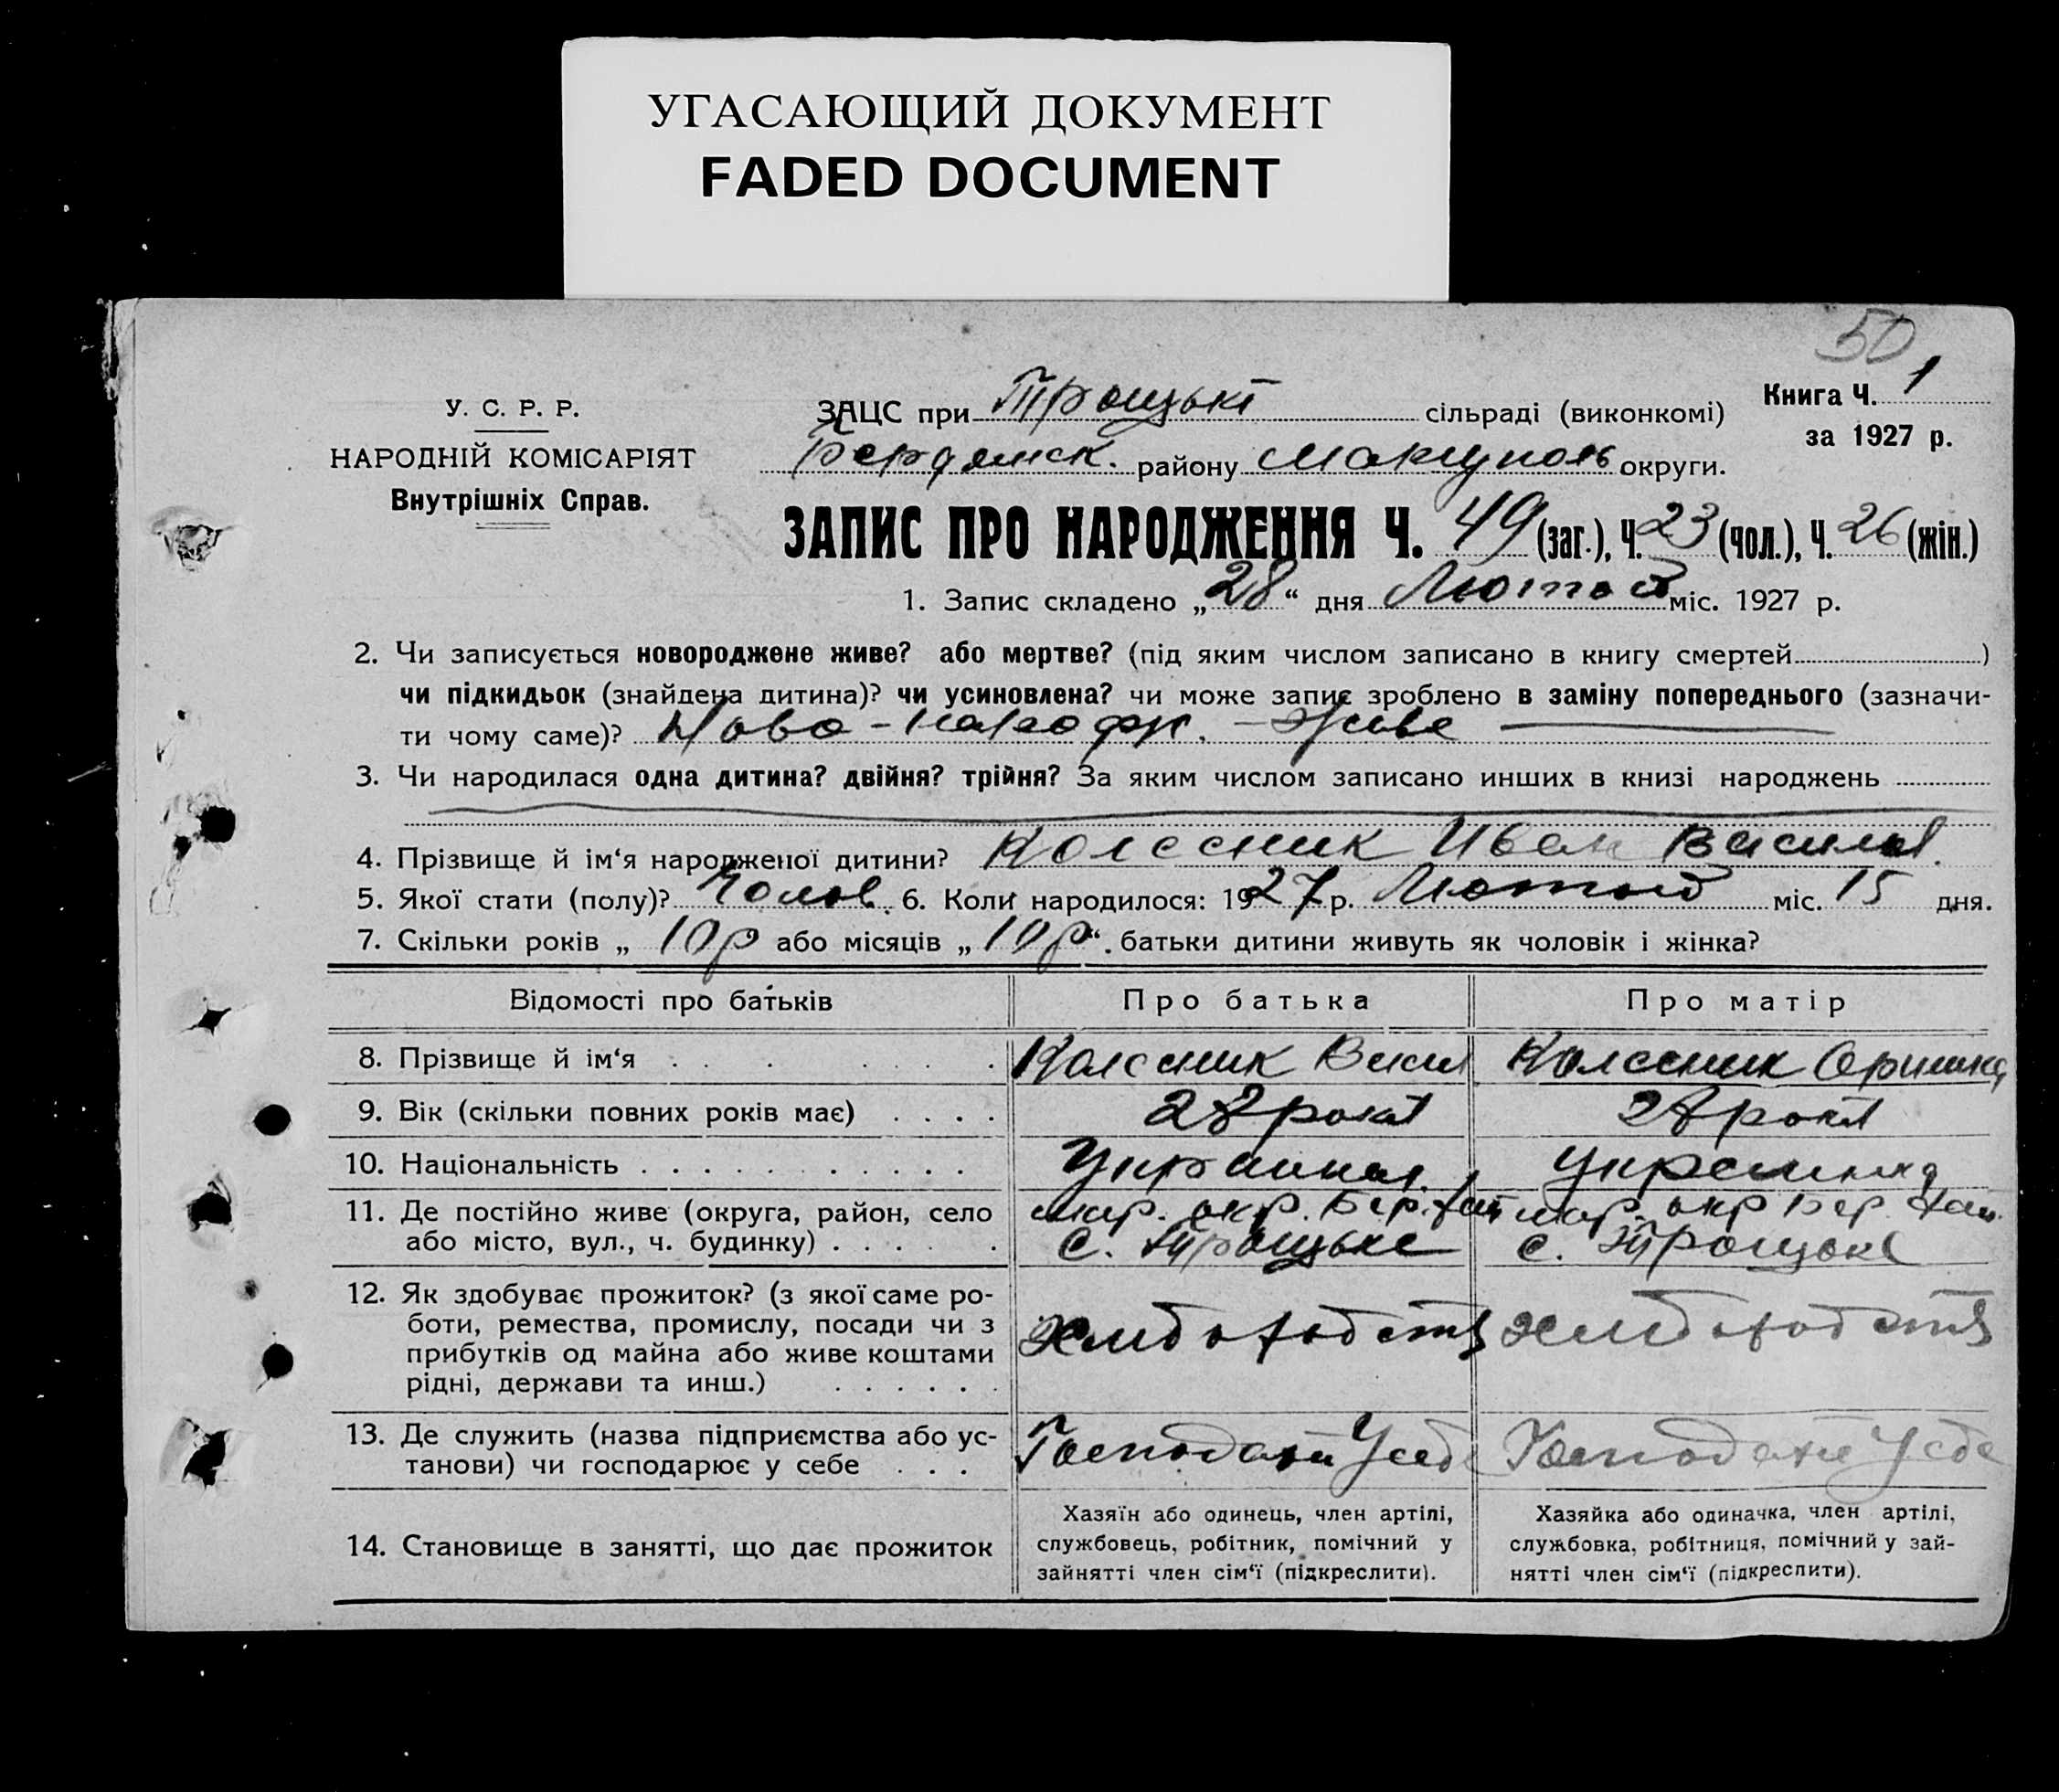 УГАСАЮЩИЙ ДОКУМЕНТ
FADED DOCUMENT
50
У. С. Р. Р.
НАРОДНІЙ КОМІСАРІЯТ
Внутрішніх Справ.
ЗАЦС при Троцькі сільраді (виконкомі)
Книга Ч. 1
за 1927 р.
Бердянск. району Мариуполь округи.
ЗАПИС ПРО НАРОДЖЕННЯ Ч. 49 (заг.), Ч. 23 (чол.), Ч. 26 (жін.)
1. Запис складено „28“ дня Лютой міс. 1927 р.
2. Чи записується новороджене живе? або мертве? (під яким числом записано в книгу смертей )
чи підкидьок (знайдена дитина)? чи усиновлена? чи може запис зроблено в заміну попереднього (зазначи-
ти чому саме)? Ново - живе
3. Чи народилася одна дитина? двійня? трійня? За яким числом записано инших в книзі народжень
4. Прізвище й ім‘я народженої дитини? Колесник Иван Васильов.
5. Якої стати (полу)? Чолов. 6. Коли народилося: 1927 р. Лютой міс. 15 дня.
7. Скільки років „ 10р або місяців „ 10р “. батьки дитини живуть як чоловік і жінка?
Відомості про батьків Про батька Про матір
8. Прізвище й ім‘я Колесник Васил Колесник Оришка
9. Вік (скільки повних років має) 28 рокив рокив
10. Національність Украинец Украинка
11. Де постійно живе (округа, район, село мар. окр. Бер. рай мар. окр Бер. рай.
або місто, вул., ч. будинку) с. Троцьке с. Троцьке
12. Як здобуває прожиток? (з якої саме ро-
боти, ремества, промислу, посади чи з
прибутків од майна або живе коштами
рідні, держави та инш.)
хлиборобств хлиборобств
13. Де служить (назва підприємства або ус-
танови) чи господарює у себе
Господари У себе Господари У себе
14. Становище в занятті, що дає прожиток
Хазяїн або одинець, член артілі,
службовець, робітник, помічний у
зайнятті член сім‘ї (підкреслити).
Хазяйка або одиначка, член артілі,
службовка, робітниця, помічний у зай-
нятті член сім‘ї (підкреслити).